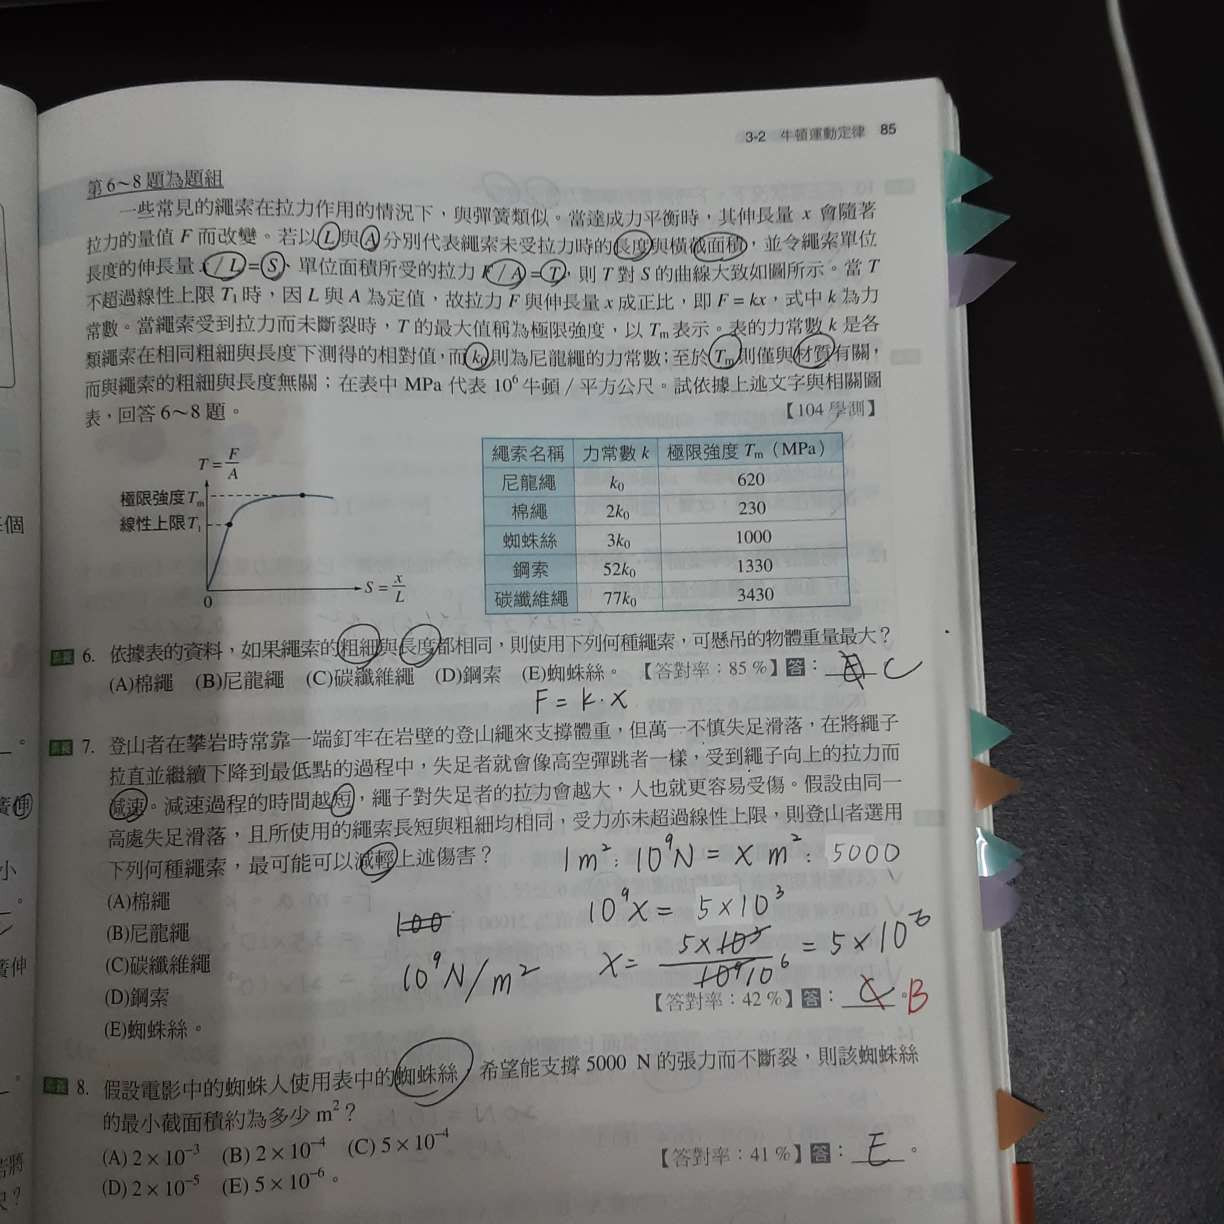 3-2 牛頓運動定律 85
第6～8題為題組
一些常見的繩索在拉力作用的情況下，與彈簧類似。當達成力平衡時，其伸長量 x 會隨著
拉力的量值 F 而改變。若以 L 與 A 分別代表繩索未受拉力時的長度與橫截面積，並令繩索單位
長度的伸長量 x / L = S、單位面積所受的拉力 F / A = T，則 T 對 S 的曲線大致如圖所示。當 T
不超過線性上限 T₁ 時，因 L 與 A 為定值，故拉力 F 與伸長量 x 成正比，即 F = kx，式中 k 為力
常數。當繩索受到拉力而未斷裂時，T 的最大值稱為極限強度，以 Tm 表示。表的力常數 k 是各
類繩索在相同粗細與長度下測得的相對值，而 k₀ 則為尼龍繩的力常數；至於 Tm 則僅與材質有關，
而與繩索的粗細與長度無關；在表中 MPa 代表 10⁶ 牛頓 / 平方公尺。試依據上述文字與相關圖
表，回答 6～8 題。 【104 學測】
T = F/A
極限強度 Tm
線性上限 T₁
0
S = x/L
繩索名稱 力常數 k 極限強度 Tm（MPa）
尼龍繩 k₀ 620
棉繩 2k₀ 230
蜘蛛絲 3k₀ 1000
鋼索 52k₀ 1330
碳纖維繩 77k₀ 3430
6. 依據表的資料，如果繩索的粗細與長度都相同，則使用下列何種繩索，可懸吊的物體重量最大？
(A)棉繩 (B)尼龍繩 (C)碳纖維繩 (D)鋼索 (E)蜘蛛絲。 【答對率：85 %】答： C
F = k · x
7. 登山者在攀岩時常靠一端釘牢在岩壁的登山繩來支撐體重，但萬一不慎失足滑落，在將繩子
拉直並繼續下降到最低點的過程中，失足者就會像高空彈跳者一樣，受到繩子向上的拉力而
減速。減速過程的時間越短，繩子對失足者的拉力會越大，人也就更容易受傷。假設由同一
高處失足滑落，且所使用的繩索長短與粗細均相同，受力亦未超過線性上限，則登山者選用
下列何種繩索，最可能可以減輕上述傷害？
1m² : 10⁹N = X m² : 5000
(A)棉繩
10⁹X = 5×10³
(B)尼龍繩
100
(C)碳纖維繩
10⁹N/m²
X = 5×10³/10⁹10⁶ = 5×10⁻⁶
(D)鋼索
【答對率：42 %】答： C 。B
(E)蜘蛛絲。
8. 假設電影中的蜘蛛人使用表中的蜘蛛絲，希望能支撐 5000 N 的張力而不斷裂，則該蜘蛛絲
的最小截面積約為多少 m²？
(A) 2 × 10⁻³ (B) 2 × 10⁻⁴ (C) 5 × 10⁻⁴
(D) 2 × 10⁻⁵ (E) 5 × 10⁻⁶。
【答對率：41 %】答： E 。